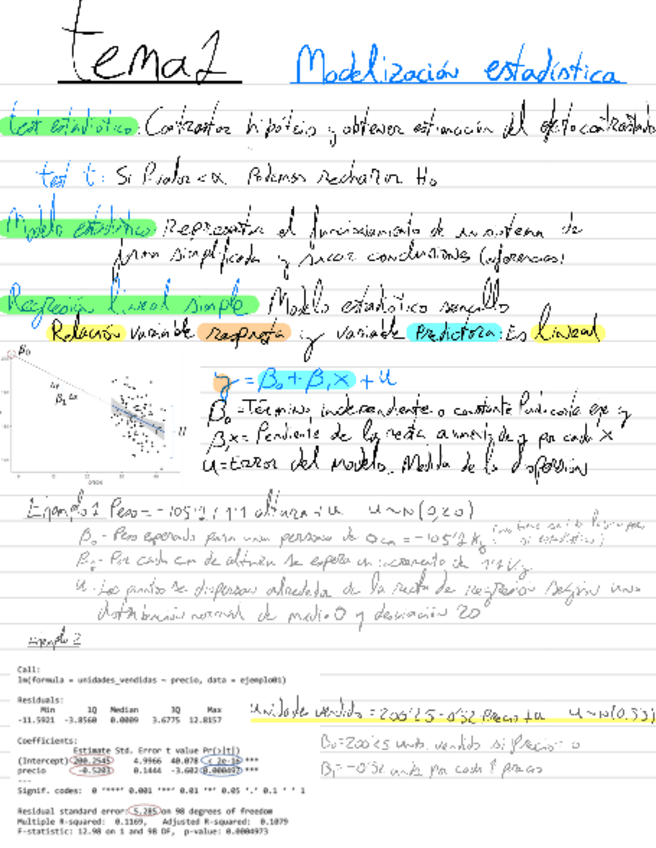 tema 2 Modelización estadística
test estadístico: Contrastar hipótesis y obtener estimación del efecto contrastado
test t: Si P valor < α Podemos rechazar H₀
Modelo estadístico Representar el funcionamiento de un sistema de
forma simplificada y sacar conclusiones (inferencias)
Regresión lineal simple Modelo estadístico sencillo
Relación variable respuesta y variable Predictora: Es lineal
β₀
β₁
U
y = β₀ + β₁x + u
β₀ = Término independiente o constante Punto corta eje y
β₁x = Pendiente de la recta aumento de y por cada x
U = Error del modelo. Medida de la dispersión
Ejemplo 1 Peso = -105'2 + 1'1 altura + u u~N(0,20)
β₀ - Peso esperado para una persona de 0cm = -105'2 Kg
- Por cada cm de altura se espera un incremento de 1'1 Kg
u - Los puntos se dispersan alrededor de la recta de regresión según una
distribución normal de media 0 y desviación 20
Ejemplo 2
Call:
lm(formula = unidades_vendidas ~ precio, data = ejemplo01)
Residuals:
Min 1Q Median 3Q Max
-11.5921 -3.8560 0.0009 3.6775 12.8157
Unidades vendidas = 200'25 - 0'52 Precio + u
Coefficients:
Estimate Std. Error t value Pr(>|t|)
(Intercept) 200.2545 4.9966 40.078 < 2e-16 ***
precio -0.5203 0.1444 -3.602 0.000497 ***
---
β₀ = 200'25 unds. vendidas si precio = 0
β₁ = -0'52 unds por cada ↑ precio
Signif. codes: 0 '***' 0.001 '**' 0.01 '*' 0.05 '.' 0.1 ' ' 1
Residual standard error: 5.285 on 98 degrees of freedom
Multiple R-squared: 0.1169, Adjusted R-squared: 0.1079
F-statistic: 12.98 on 1 and 98 DF, p-value: 0.0004973